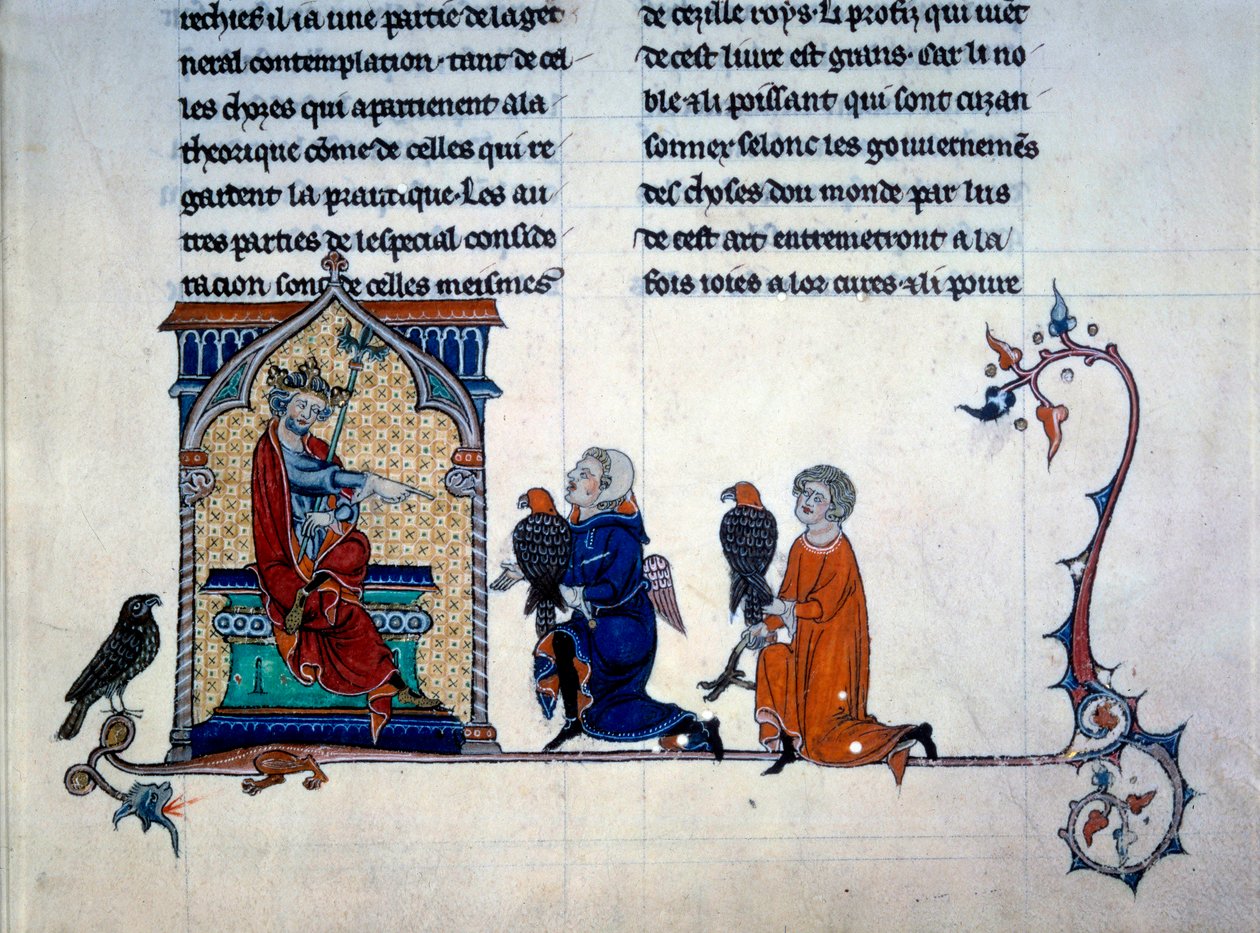 rechief il ia une partie de la ge
neral contemplation· tant de cel
les chozes qui apartienent a la
theorique cõme de celles qui re
gardent la prautique· Les au
tres parties de lespecial conside
racion sont de celles meismes
de cezille roys· Li profiz qui uiẽt
de cest liure est grans· Car li no
ble ⁊ li poissant qui sont
selonc les gouuernemẽs
des choses dou monde par lus
de cest art entremetront a la
fois ioies a lor cures· ⁊ li poure